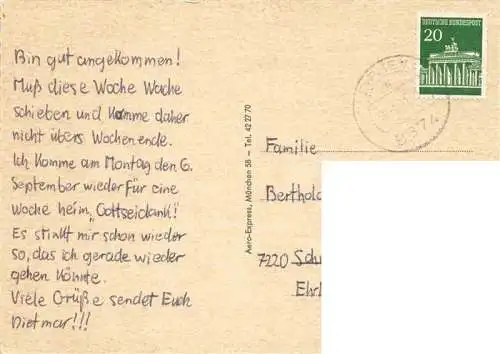 Bin gut angekommen!
Muß diese Woche Wache
schieben und komme daher
nicht übers Wochenende.
Ich komme am Montag den 6.
September wieder für eine
Woche heim, "Gottseidank"!
Es stinkt mir schon wieder
so, das ich gerade wieder
gehen könnte.
Viele Grüße sendet Euch
Dietmar!!!
Aero-Express, München 58 — Tel. 42 27 70
DEUTSCHE BUNDESPOST
20
Familie
Berthold
7220 Sch
Ehrl